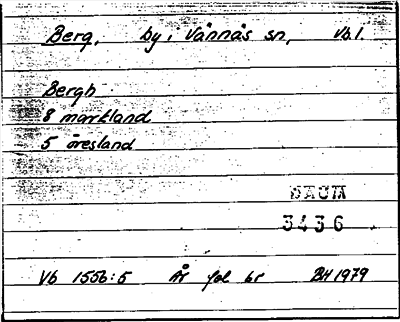 Berg, by i Vännäs sn, Vb l
Bergh
8 markland
5 öresland
DAUM
3436
Vb 1556:5 År fol br BH 1979